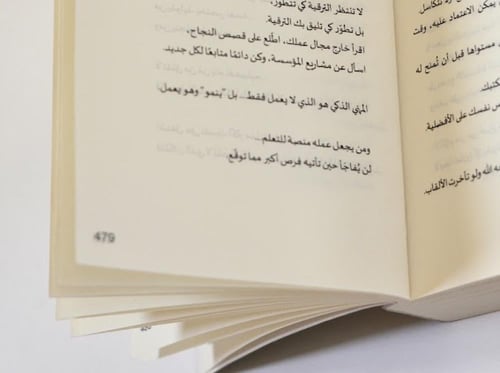 يمكن الاعتماد عليه، وقت
مستواها قبل أن تُمنح له
نفسك على الأفضلية
الله ولو تأخرت الألقاب.
لا تنتظر الترقية كي تتطور،
بل تطوّر كي تليق بك الترقية.
اقرأ خارج مجال عملك، اطّلع على قصص النجاح،
اسأل عن مشاريع المؤسسة، وكن دائمًا متابعًا لكل جديد.
المهني الذكي هو الذي لا يعمل فقط... بل "ينمو" وهو يعمل.
ومن يجعل عمله منصة للتعلم...
لن يُفاجَأ حين تأتيه فرص أكبر مما توقّع.
479